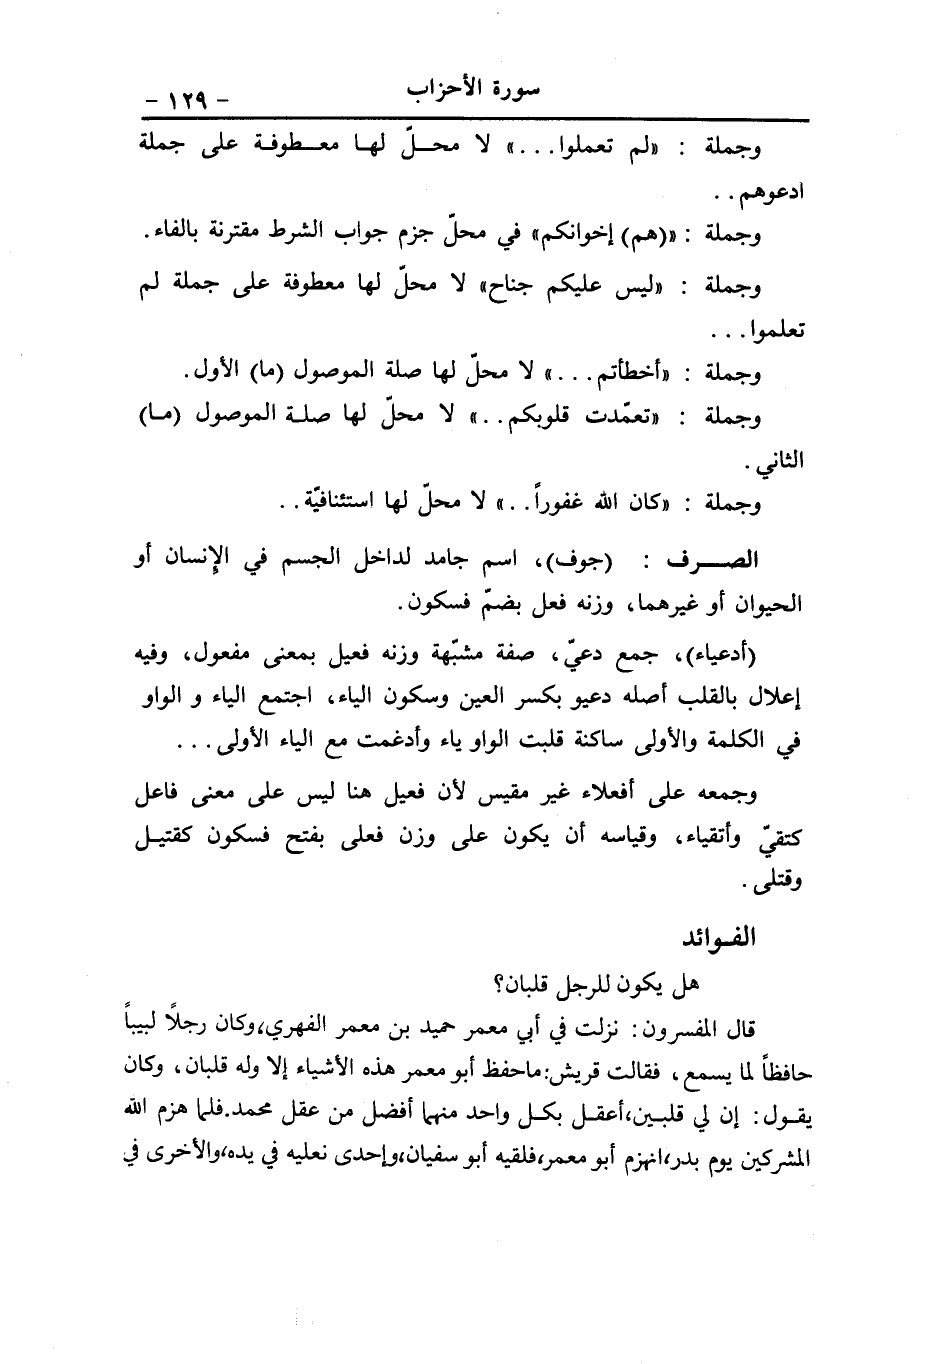 سورة الأحزاب - ١٢٩ -
وجملة : «لم تعملوا...» لا محلّ لها معطوفة على جملة
ادعوهم..
وجملة : «(هم) إخوانكم» في محلّ جزم جواب الشرط مقترنة بالفاء.
وجملة : «ليس عليكم جناح» لا محلّ لها معطوفة على جملة لم
تعلموا...
وجملة : «أخطأتم...» لا محلّ لها صلة الموصول (ما) الأول.
وجملة : «تعمّدت قلوبكم..» لا محلّ لها صلة الموصول (ما)
الثاني.
وجملة : «كان الله غفوراً..» لا محلّ لها استئنافيّة..
الصرف : (جوف)، اسم جامد لداخل الجسم في الإنسان أو
الحيوان أو غيرهما، وزنه فعل بضمّ فسكون.
(أدعياء)، جمع دعيّ، صفة مشبّهة وزنه فعيل بمعنى مفعول، وفيه
إعلال بالقلب أصله دعيو بكسر العين وسكون الياء، اجتمع الياء و الواو
في الكلمة والأولى ساكنة قلبت الواو ياء وأدغمت مع الياء الأولى...
وجمعه على أفعلاء غير مقيس لأن فعيل هنا ليس على معنى فاعل
كتقيّ وأتقياء، وقياسه أن يكون على وزن فعلى بفتح فسكون كقتيل
وقتلى.
الفوائد
هل يكون للرجل قلبان؟
قال المفسرون: نزلت في أبي معمر حميد بن معمر الفهري،وكان رجلاً لبيباً
حافظاً لما يسمع، فقالت قريش:ماحفظ أبو معمر هذه الأشياء إلا وله قلبان، وكان
يقول: إن لي قلبين،أعقل بكل واحد منهما أفضل من عقل محمد.فلما هزم الله
المشركين يوم بدر،انهزم أبو معمر،فلقيه أبو سفيان،وإحدى نعليه في يده،والأخرى في